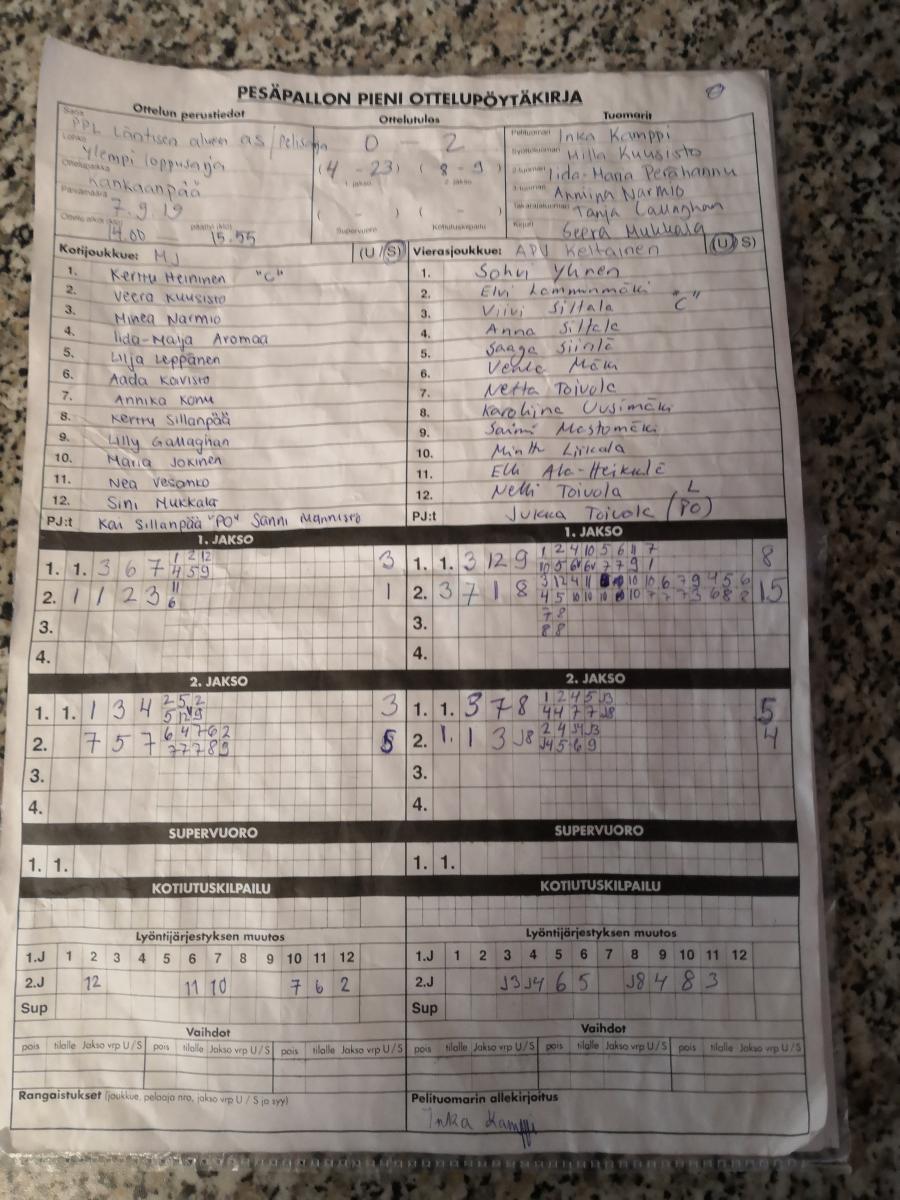 PESÄPALLON PIENI OTTELUPÖYTÄKIRJA
Ottelun perustiedot Ottelutulos Tuomarit
Sarja PPL Läntisen alueen as/Pelisarja
Lohko Ylempi loppusarja
Ottelupaikka Kankaanpää
Päivämäärä 7.9.19
14.00 15.55
0 - 2
(4 - 23) (8 - 9)
1. jakso 2. jakso
( - ) ( - )
Supervuoro Kotiutuskilpailu
Pelituomari Inka Kamppi
Syöttötuomari Milla Kuusisto
2-tuomari Iida-Maria Perähannu
3-tuomari Anniina Narmio
Takarajatuomari Tanja Callaghan
Kirjuri Seera Mukkala
Kotijoukkue: MJ (U/S)
1. Kerttu Heininen "C"
2. Veera Kuusisto
3. Minea Narmio
4. Iida-Maija Aromaa
5. Lilja Leppänen
6. Aada Koivisto
7. Annika Konu
8. Kerttu Sillanpää
9. Lilly Gallaghan
10. Maria Jokinen
11. Nea Vesanko
12. Sini Mukkala
PJ:t Kai Sillanpää "PO" Sanni Mannisto
Vierasjoukkue: APV Keltainen (U/S)
1. Sohvi Ylinen
2. Elvi Lamminmäki
3. Viivi Siltala "C"
4. Anna Siltala
5. Saaga Siirilä
6. Venla Mäki
7. Netta Toivola
8. Karoliina Uusimäki
9. Saimi Mastomäki
10. Minttu Liikala
11. Elli Ala-Heikkilä
12. Nelli Toivola
PJ:t Jukka Toivola (L PO)
1. JAKSO
1. 1. 3 6 7 1 2 12 3
4 5 9
2. 1 1 2 3 11 1
6
3.
4.
1. JAKSO
1. 1. 3 12 9 1 2 4 10 5 6 11 7 8
2. 3 7 1 8 15
3. 7 8
8 8
4.
2. JAKSO
1. 1. 1 3 4 2 5 2 3
5 12 9
2. 7 5 7 6 4 7 6 2 5
7 7 7 8 9
3.
4.
2. JAKSO
1. 1. 3 7 8 1 2 4 5 J3 5
4 4 7 7 J8
2. 1. 1 3 J8 2 4 J4 J3 4
J4 5 6 9
3.
4.
SUPERVUORO
1. 1.
SUPERVUORO
1. 1.
KOTIUTUSKILPAILU
KOTIUTUSKILPAILU
Lyöntijärjestyksen muutos
1.J 1 2 3 4 5 6 7 8 9 10 11 12
2.J 12 11 10 7 6 2
Sup
Lyöntijärjestyksen muutos
1.J 1 2 3 4 5 6 7 8 9 10 11 12
2.J J3 J4 6 5 J8 4 8 3
Sup
Vaihdot
pois tilalle Jakso vrp U/S pois tilalle Jakso vrp U/S pois tilalle Jakso vrp U/S
Vaihdot
pois tilalle Jakso vrp U/S pois tilalle Jakso vrp U/S pois tilalle Jakso vrp U/S
Rangaistukset (joukkue, pelaaja nro, jakso vrp U/S ja syy)
Pelituomarin allekirjoitus
Inka Kamppi